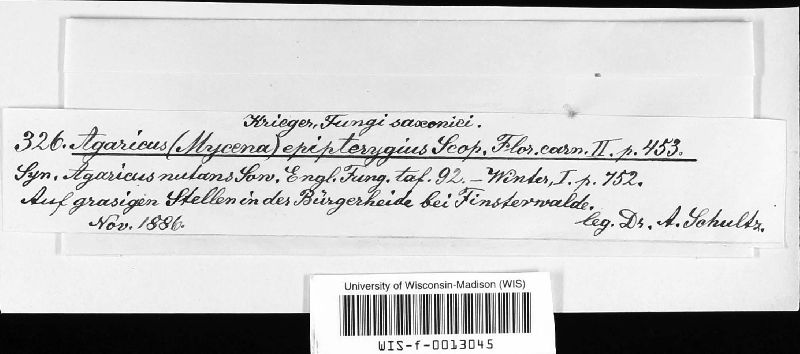 Krieger, Fungi saxonici.
326. Agaricus (Mycena) epipterygius Scop. Flor. carn. II. p. 453.
Syn. Agaricus nutans Sow. Engl. Fung. taf. 92. – Winter, I. p. 752.
Auf grasigen Stellen in der Bürgerheide bei Finsterwalde.
Nov. 1886. leg. Dr. A. Schultz.
University of Wisconsin-Madison (WIS)
WIS-f-0013045